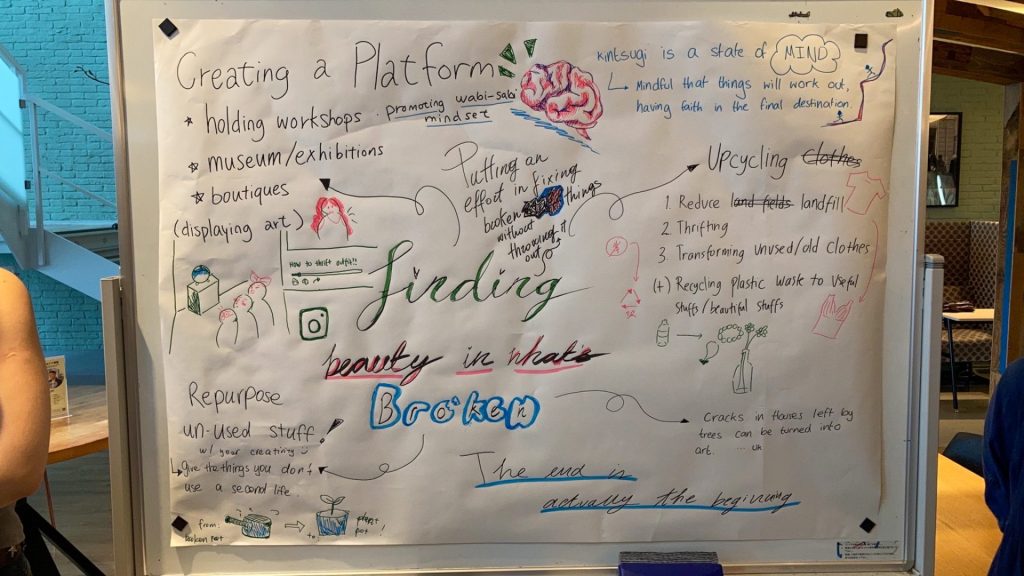 Creating a Platform
★ holding workshops
· promoting wabi-sabi
mindset
★ museum/exhibitions
★ boutiques
(displaying art)
kintsugi is a state of MIND
↳ Mindful that things will work out,
having faith in the final destination.
Putting an
effect in fixing
broken things
without
throwing it
out
Upcycling Clothes
1. Reduce land fields landfill
2. Thrifting
3. Transforming Unused/old Clothes
(+) Recycling Plastic Waste to Useful
Stuffs/beautiful stuffs
How to thrift outfit!!
finding
beauty in what's
Broken
Repurpose
un-used stuff!
w/ your creating
↳ Give the things you don't
use a second life.
from:
broken pot
to:
plant
pot!
Cracks in houses left by
trees can be turned into
art. ... uk
The end is
actually the begining